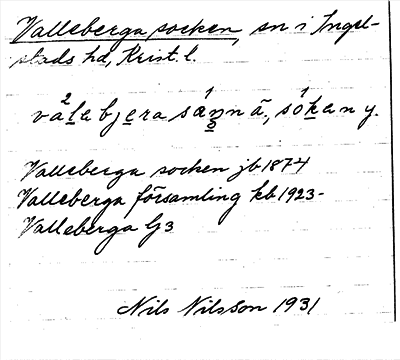 Valleberga socken, sn i Ingel-
stads hd, Krist. l.
Valleberga socken jb 1874
Valleberga församling kb 1923-
Valleberga G3
Nils Nilsson 1931